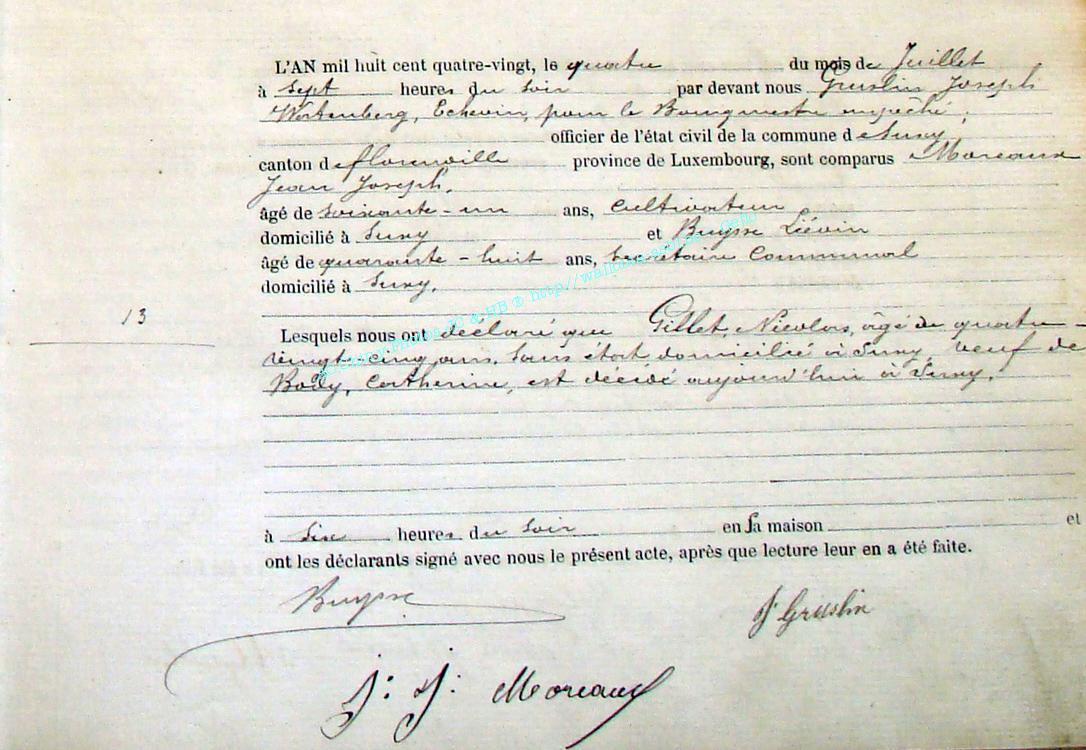 L'AN mil huit cent quatre-vingt, le quatre du mois de Juillet
à sept heures du soir par devant nous Gruslin Joseph
Echevin, pour le Bourgmestre empêché,
officier de l'état civil de la commune de Suxy
canton de florenville province de Luxembourg, sont comparus Moreaux
Jean Joseph,
âgé de soixante-un ans, cultivateur
domicilié à Suxy et Buysse Liévin
âgé de quarante-huit ans, Secrétaire Communal
domicilié à Suxy,
13
Lesquels nous ont déclaré que Gillet, Nicolas, âgé de quatre-
vingt-cinq ans, sans état domicilié à Suxy, veuf de
Body, Catherine, est décédé aujourd'hui à Suxy,
à six heures du soir en sa maison et
ont les déclarants signé avec nous le présent acte, après que lecture leur en a été faite.
Buysse
J Gruslin
J: J: Moreaux